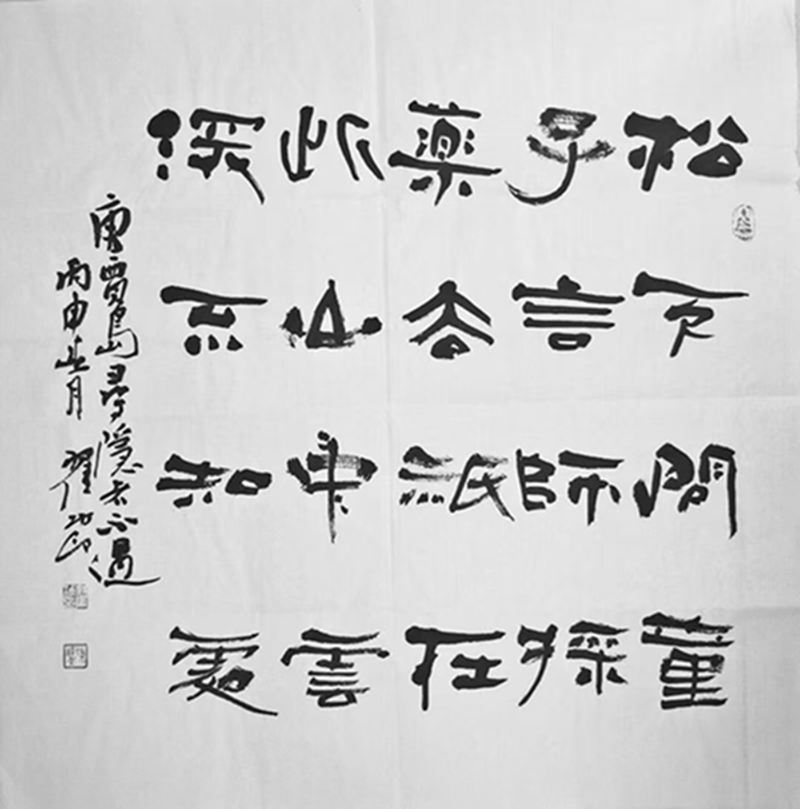 松下問童
子言師採
藥去祇在
此山中雲
深不知處
唐賈島尋隱者不遇
丙申正月 翟